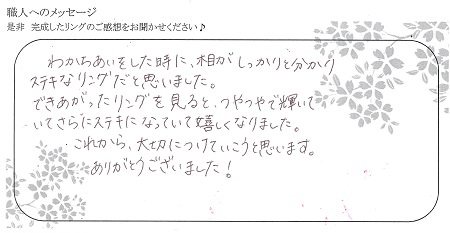 職人へのメッセージ
是非 完成したリングのご感想をお聞かせください♪
わかちあいをした時に、相がしっかりと分かり
ステキなリングだと思いました。
できあがったリングを見ると、つやつやで輝いて
いてさらにステキになっていて嬉しくなりました。
これから、大切につけていこうと思います。
ありがとうございました！